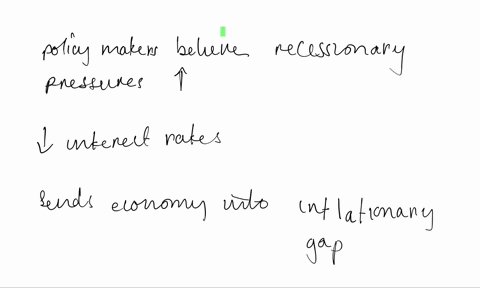 policy makers believe recessionary
pressures ↑
↓ interest rates
sends economy into inflationary
gap